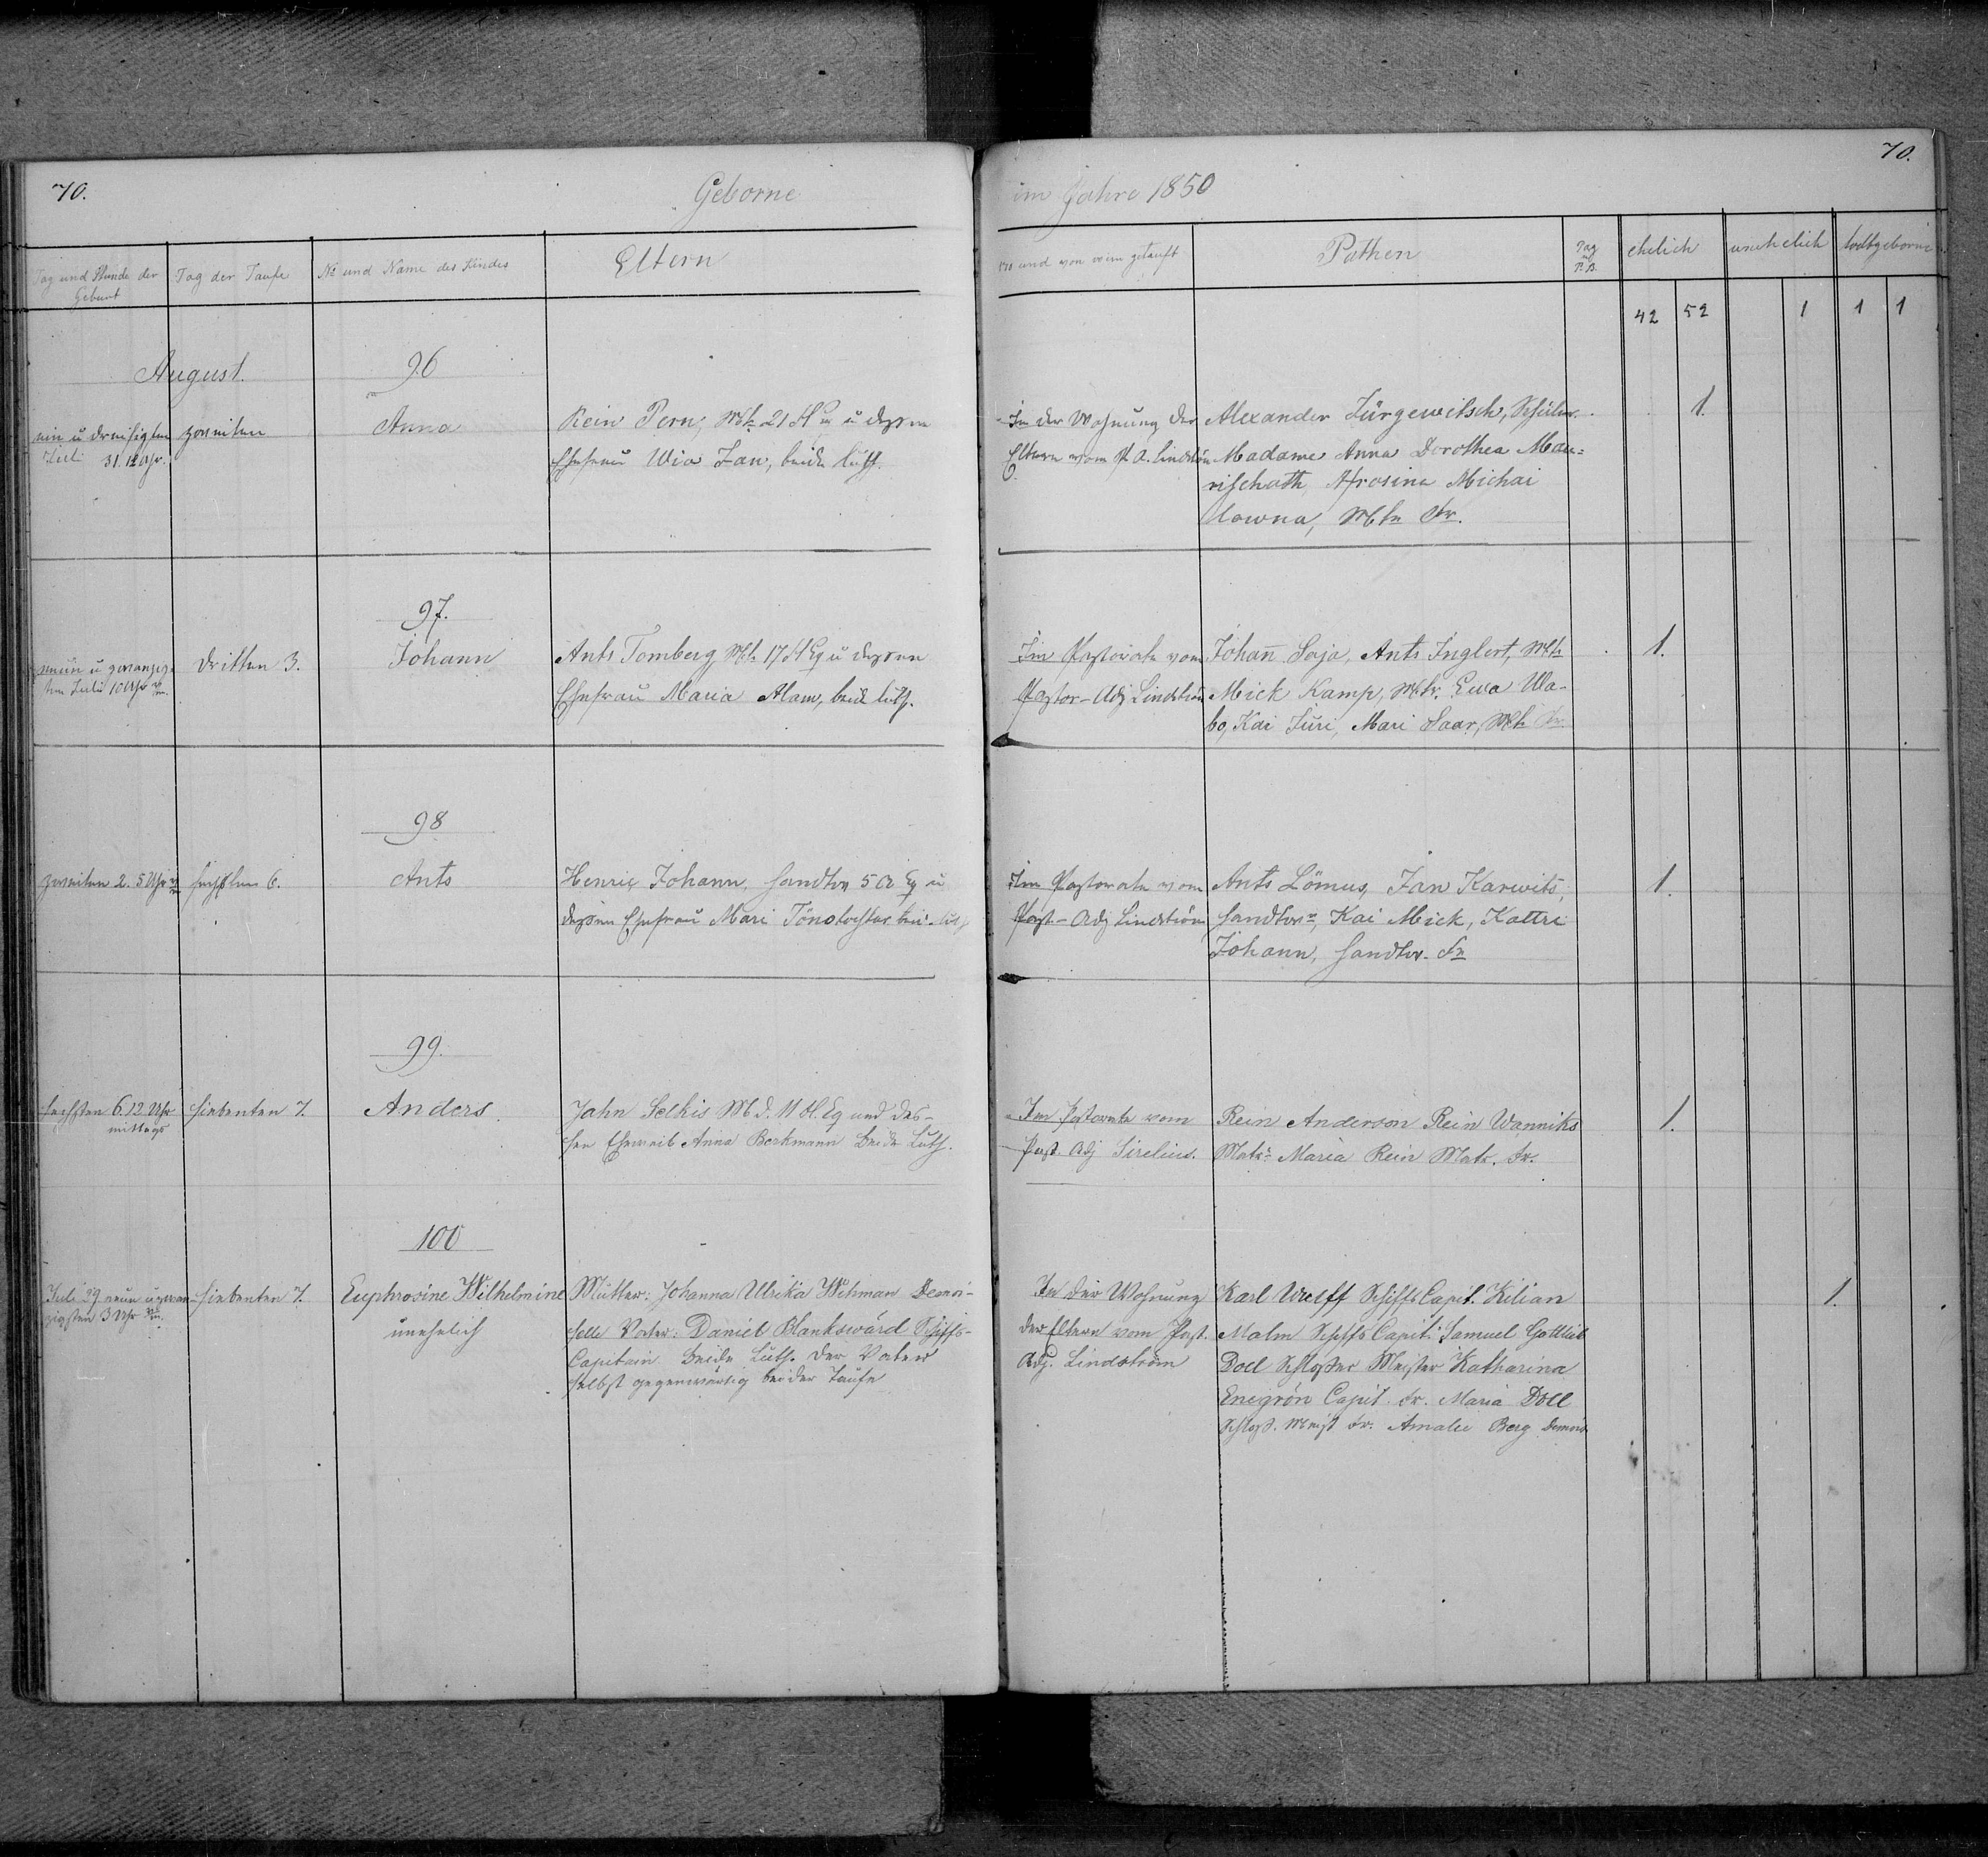 70.
Geborne
im Jahre 1850
70.
Tag und Stunde der Geburt
Tag der Taufe
№ und Name des Kindes
Eltern
wo und von wem getauft
Pathen
Tag
ehelich
unehelich
todtgeborne
42 52 1 1 1
August.
96
ein u dreißigsten
Juli 31. 12 Uhr.
zweiten
Anna
Rein Pern, Mtr. 21 u dessen
Ehefrau Wio Jan, beide luth.
In der Wohnung der
Eltern vom P. A. Lindström
Alexander Jürgewitsch, Schüler.
Madame Anna Dorothea Mau-
rischath, Afrosina Michai
lowna, Mtr. Fr.
1.
97.
neun u zwanzig-
sten Juli 10 Uhr
dritten 3.
Johann
Ants Tomberg, Mtr. 17 Eq u dessen
Ehefrau Maria Alaw, beide luth.
Im Pastorate vom
Pastor-Adj Lindström
Johan̄ Saja, Ants Inglert, Mtr.
Mick Kamp, Mtr. Ewa Wa-
bo, Kai Juri, Mari Saar, Mtr. Fr.
1.
98
zweiten 2. 5 Uhr
sechsten 6.
Ants
Henric Johann, Handlr. 5 Eq u
dessen Ehefrau Mari Tönstochter, luth
Im Pastorate vom
Past-Adj Lindström
Ants Lömus, Jan Karwits,
Handlr., Kai Mick, Kattri
Johann, Handlr. Fr.
1.
99.
sechsten 6. 12 Uhr
mittags
siebenten 7.
Anders
Jahn Selkis M. d. 11 Eq und des-
sen Eheweib Anna Berkmann beide Luth.
Im Pastorate vom
Past. Adj Sirelius.
Rein Anderson Rein Wanniks
Matr. Maria Rein Matr. Fr.
1.
100
Juli 29 neun u zwan-
zigsten 3 Uhr
siebenten 7.
Euphrosine Wilhelmine
unehelich
Mutter: Johanna Ulrika Wehman Demoi-
selle Vater: Daniel Blankswärd Schiffs-
Capitain beide Luth. Der Vater
selbst gegenwärtig bei der Taufe
In der Wohnung
der Eltern vom Past.
Adj. Lindström
Karl Wulff Schiffs Capit. Kilian
Malm Schiffs Capit. Samuel Gottlieb
Doll Schlosser Meister Katharina
Enegrön Capit. Fr. Maria Doll
Schloß. Meist Fr. Amalie Berg Demois.
1.